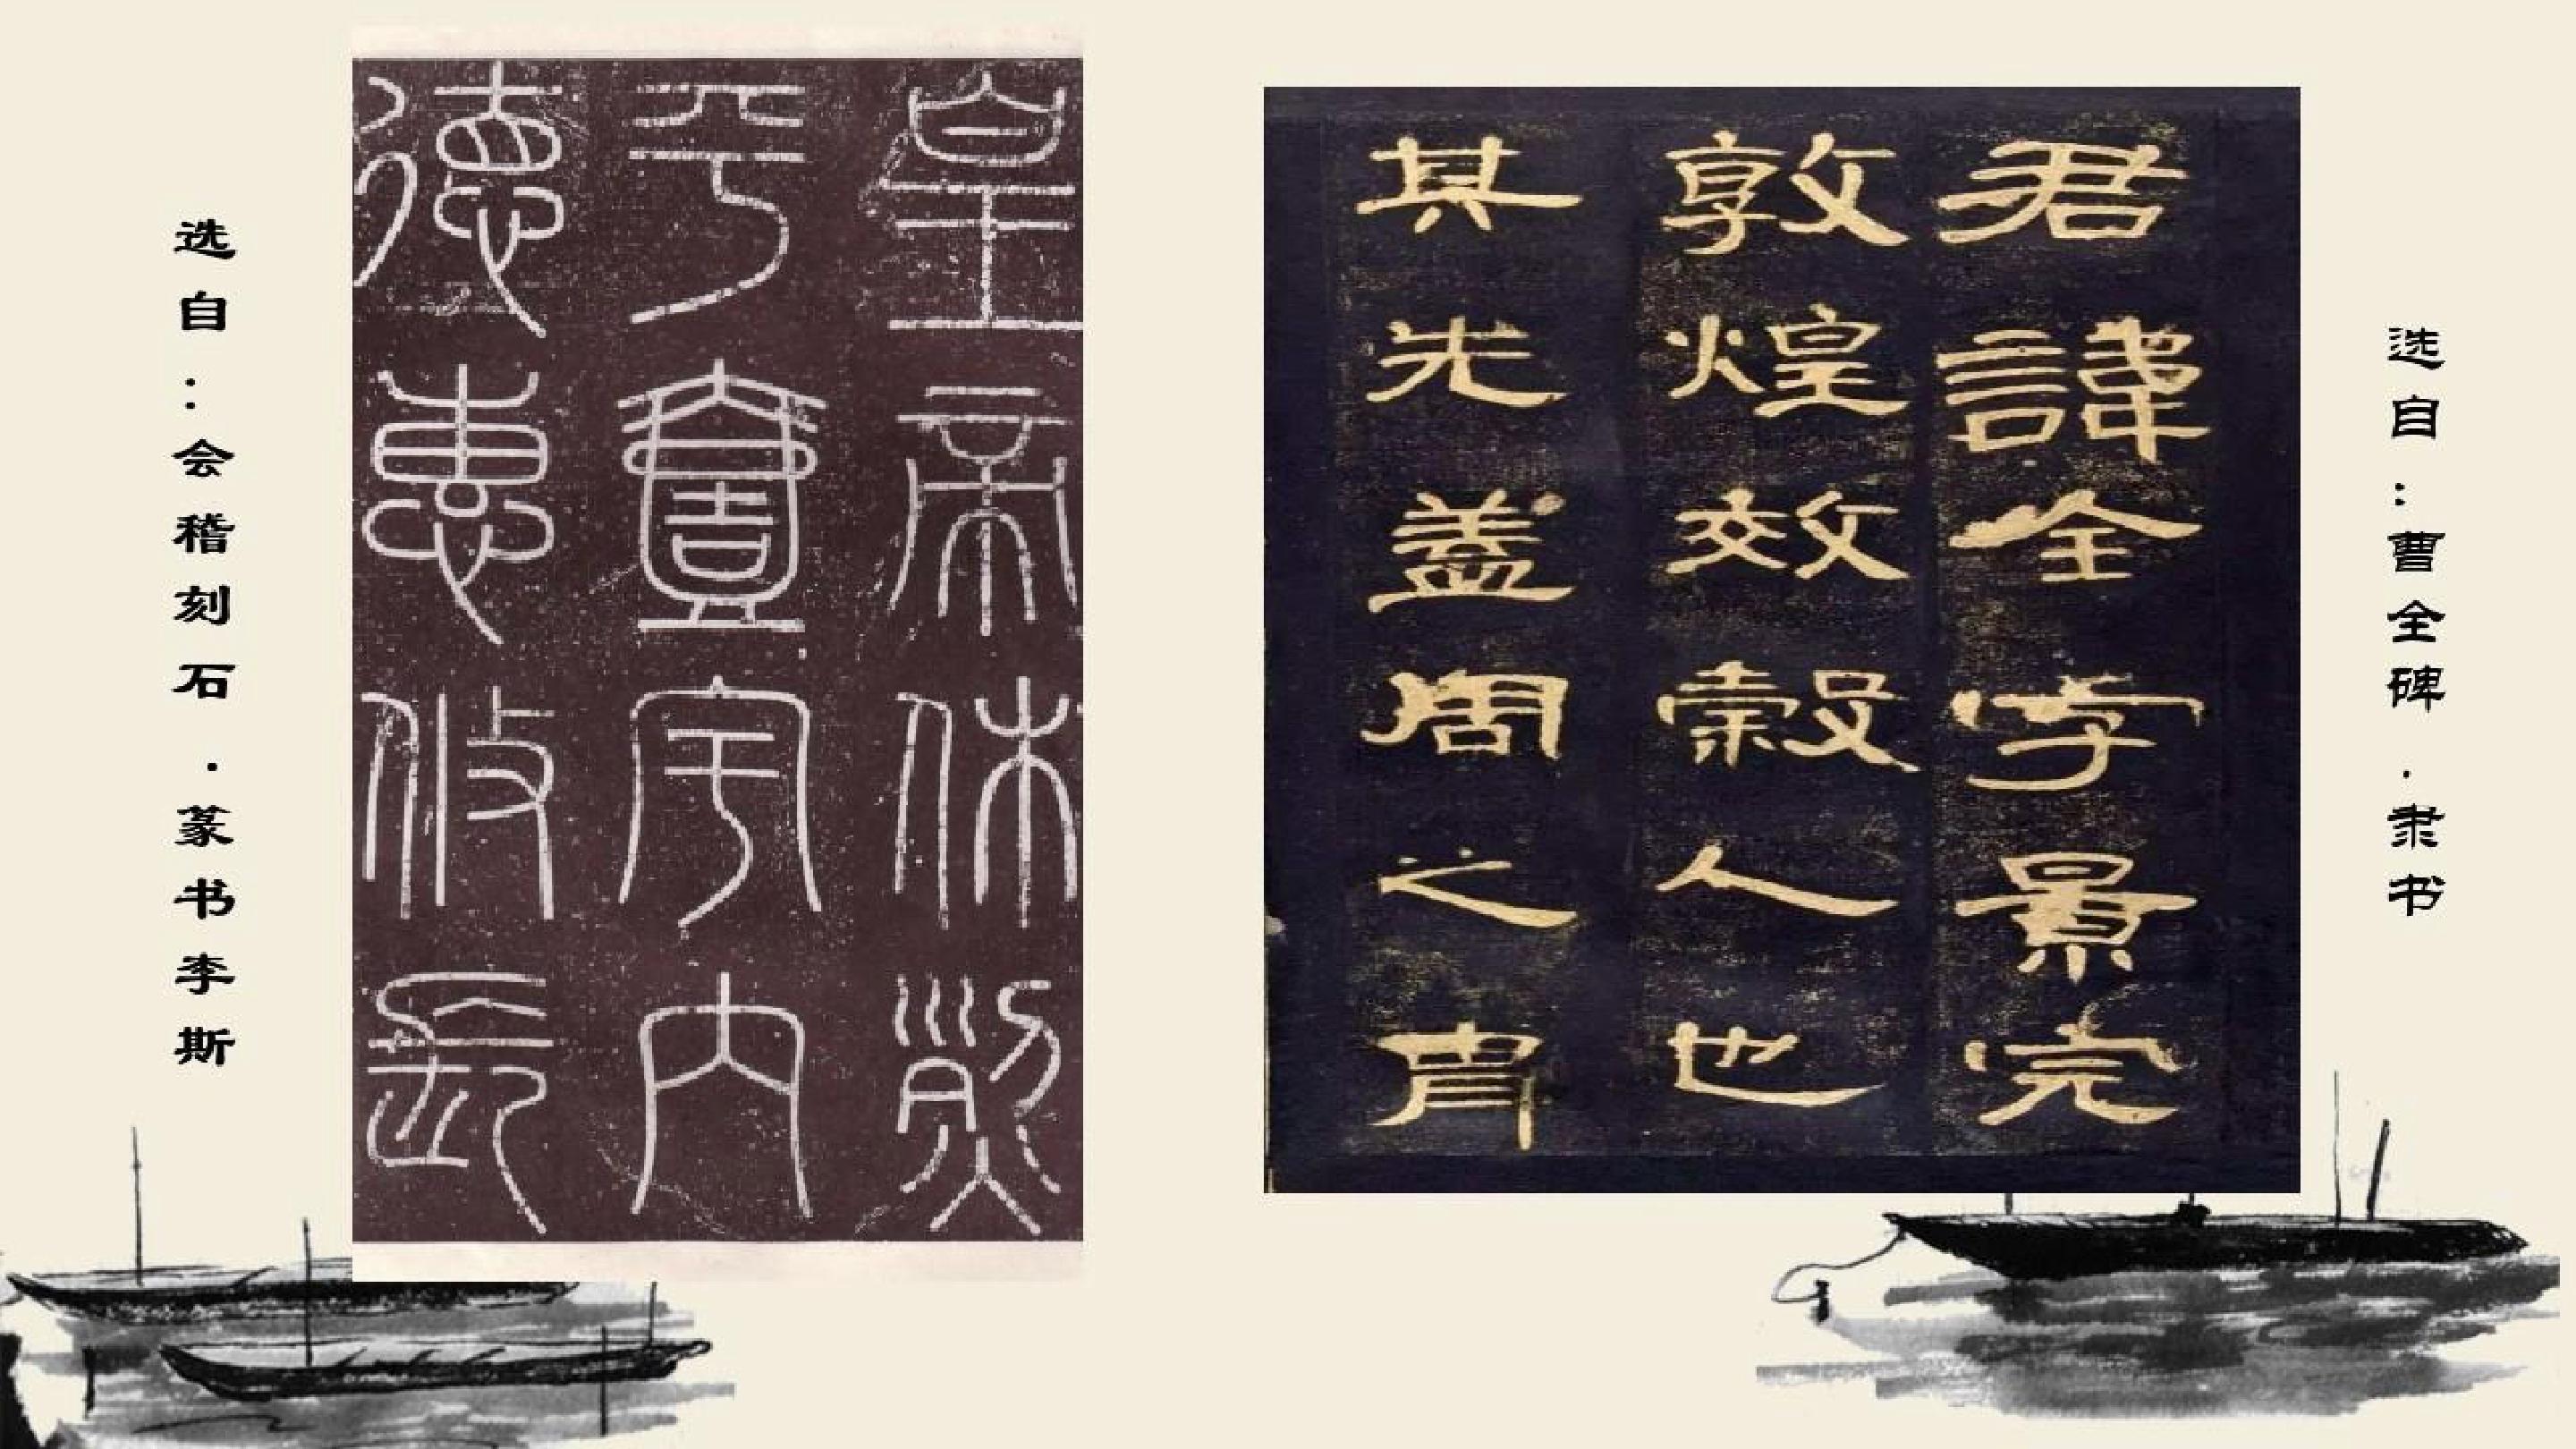 选自：会稽刻石．篆书李斯
皇帝休烈
平壹宇内
德惠攸長
君諱全字景完
敦煌效穀人也
其先蓋周之胄
选自：曹全碑．隶书